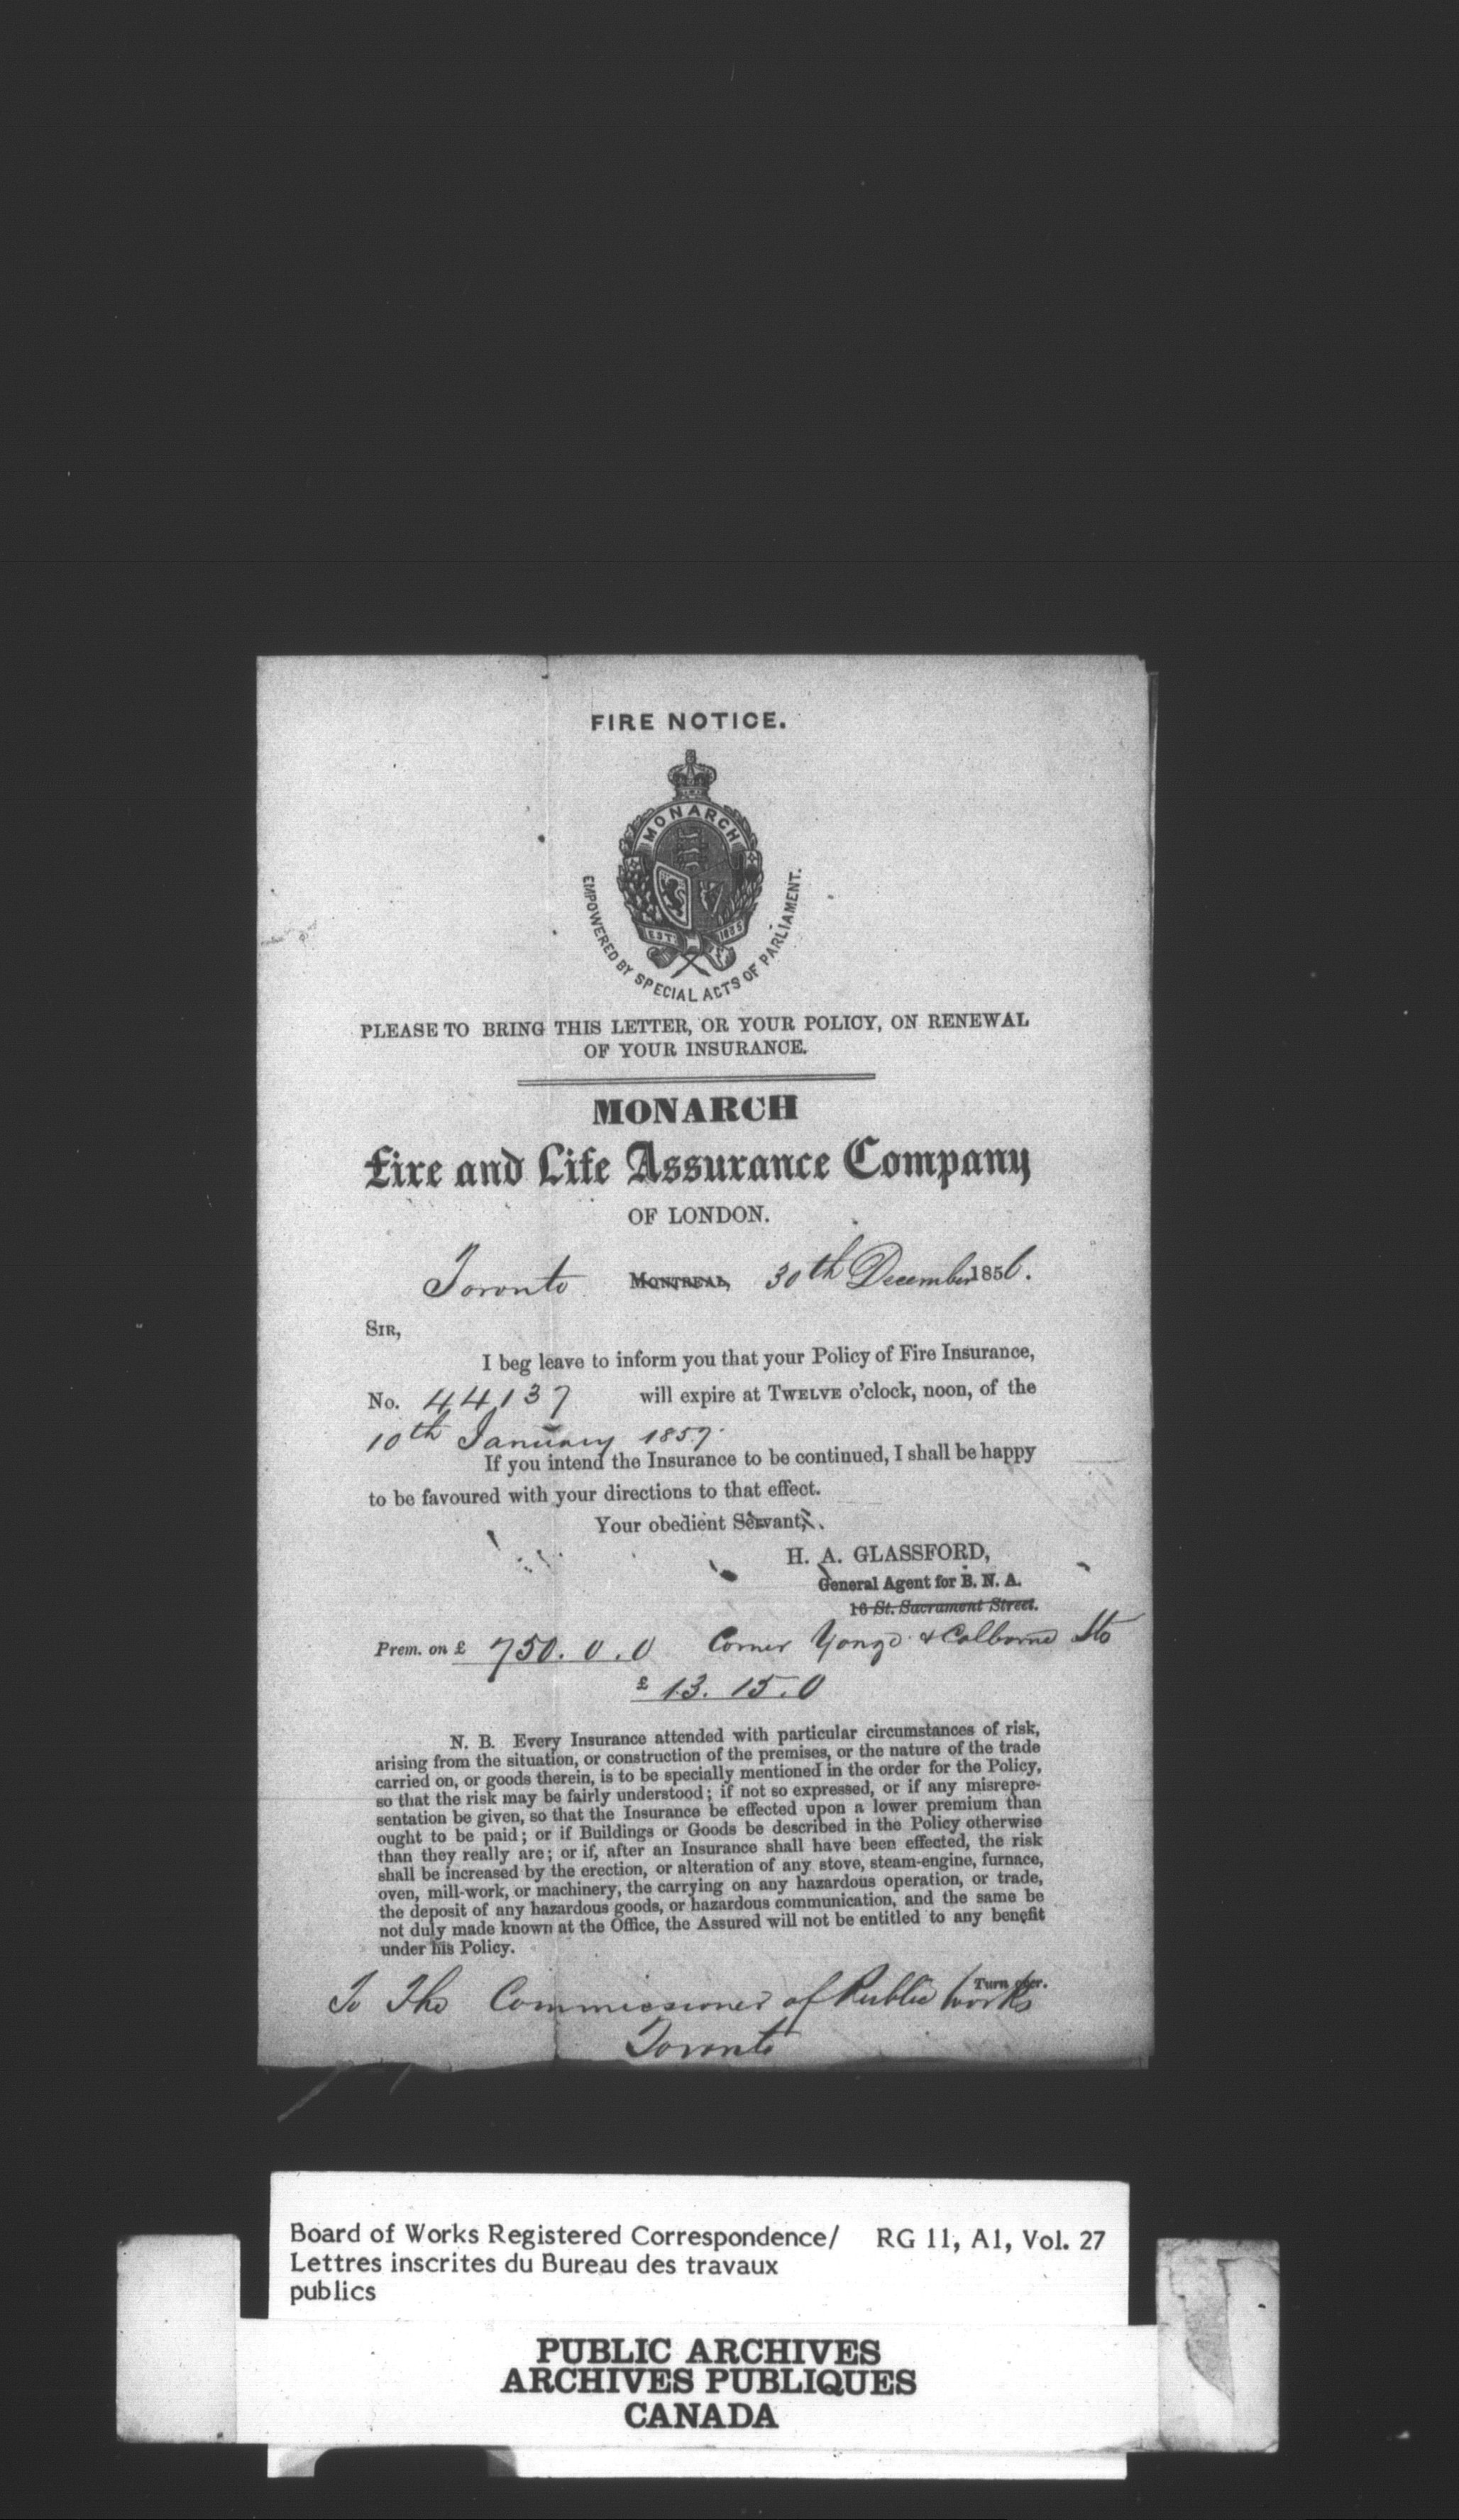 FIRE NOTICE.
MONARCH
EST. 1835
EMPOWERED BY SPECIAL ACTS OF PARLIAMENT.
PLEASE TO BRING THIS LETTER, OR YOUR POLICY, ON RENEWAL
OF YOUR INSURANCE.
MONARCH
Fire and Life Assurance Company
OF LONDON.
Toronto MONTREAL, 30th December 1856.
SIR,
I beg leave to inform you that your Policy of Fire Insurance,
No. 44137 will expire at TWELVE o'clock, noon, of the
10th January 1857.
If you intend the Insurance to be continued, I shall be happy
to be favoured with your directions to that effect.
Your obedient Servant,
H. A. GLASSFORD,
General Agent for B. N. A.
16 St. Sacrament Street.
Prem. on £ 750. 0. 0 Corner Yonge & Colborne Sts
£ 13. 15. 0
N. B. Every Insurance attended with particular circumstances of risk,
arising from the situation, or construction of the premises, or the nature of the trade
carried on, or goods therein, is to be specially mentioned in the order for the Policy,
so that the risk may be fairly understood; if not so expressed, or if any misrepre-
sentation be given, so that the Insurance be effected upon a lower premium than
ought to be paid; or if Buildings or Goods be described in the Policy otherwise
than they really are; or if, after an Insurance shall have been effected, the risk
shall be increased by the erection, or alteration of any stove, steam-engine, furnace,
oven, mill-work, or machinery, the carrying on any hazardous operation, or trade,
the deposit of any hazardous goods, or hazardous communication, and the same be
not duly made known at the Office, the Assured will not be entitled to any benefit
under his Policy.
Turn over.
To The Commissioner of Public Works
Toronto
Board of Works Registered Correspondence/ RG 11, A1, Vol. 27
Lettres inscrites du Bureau des travaux
publics
PUBLIC ARCHIVES
ARCHIVES PUBLIQUES
CANADA